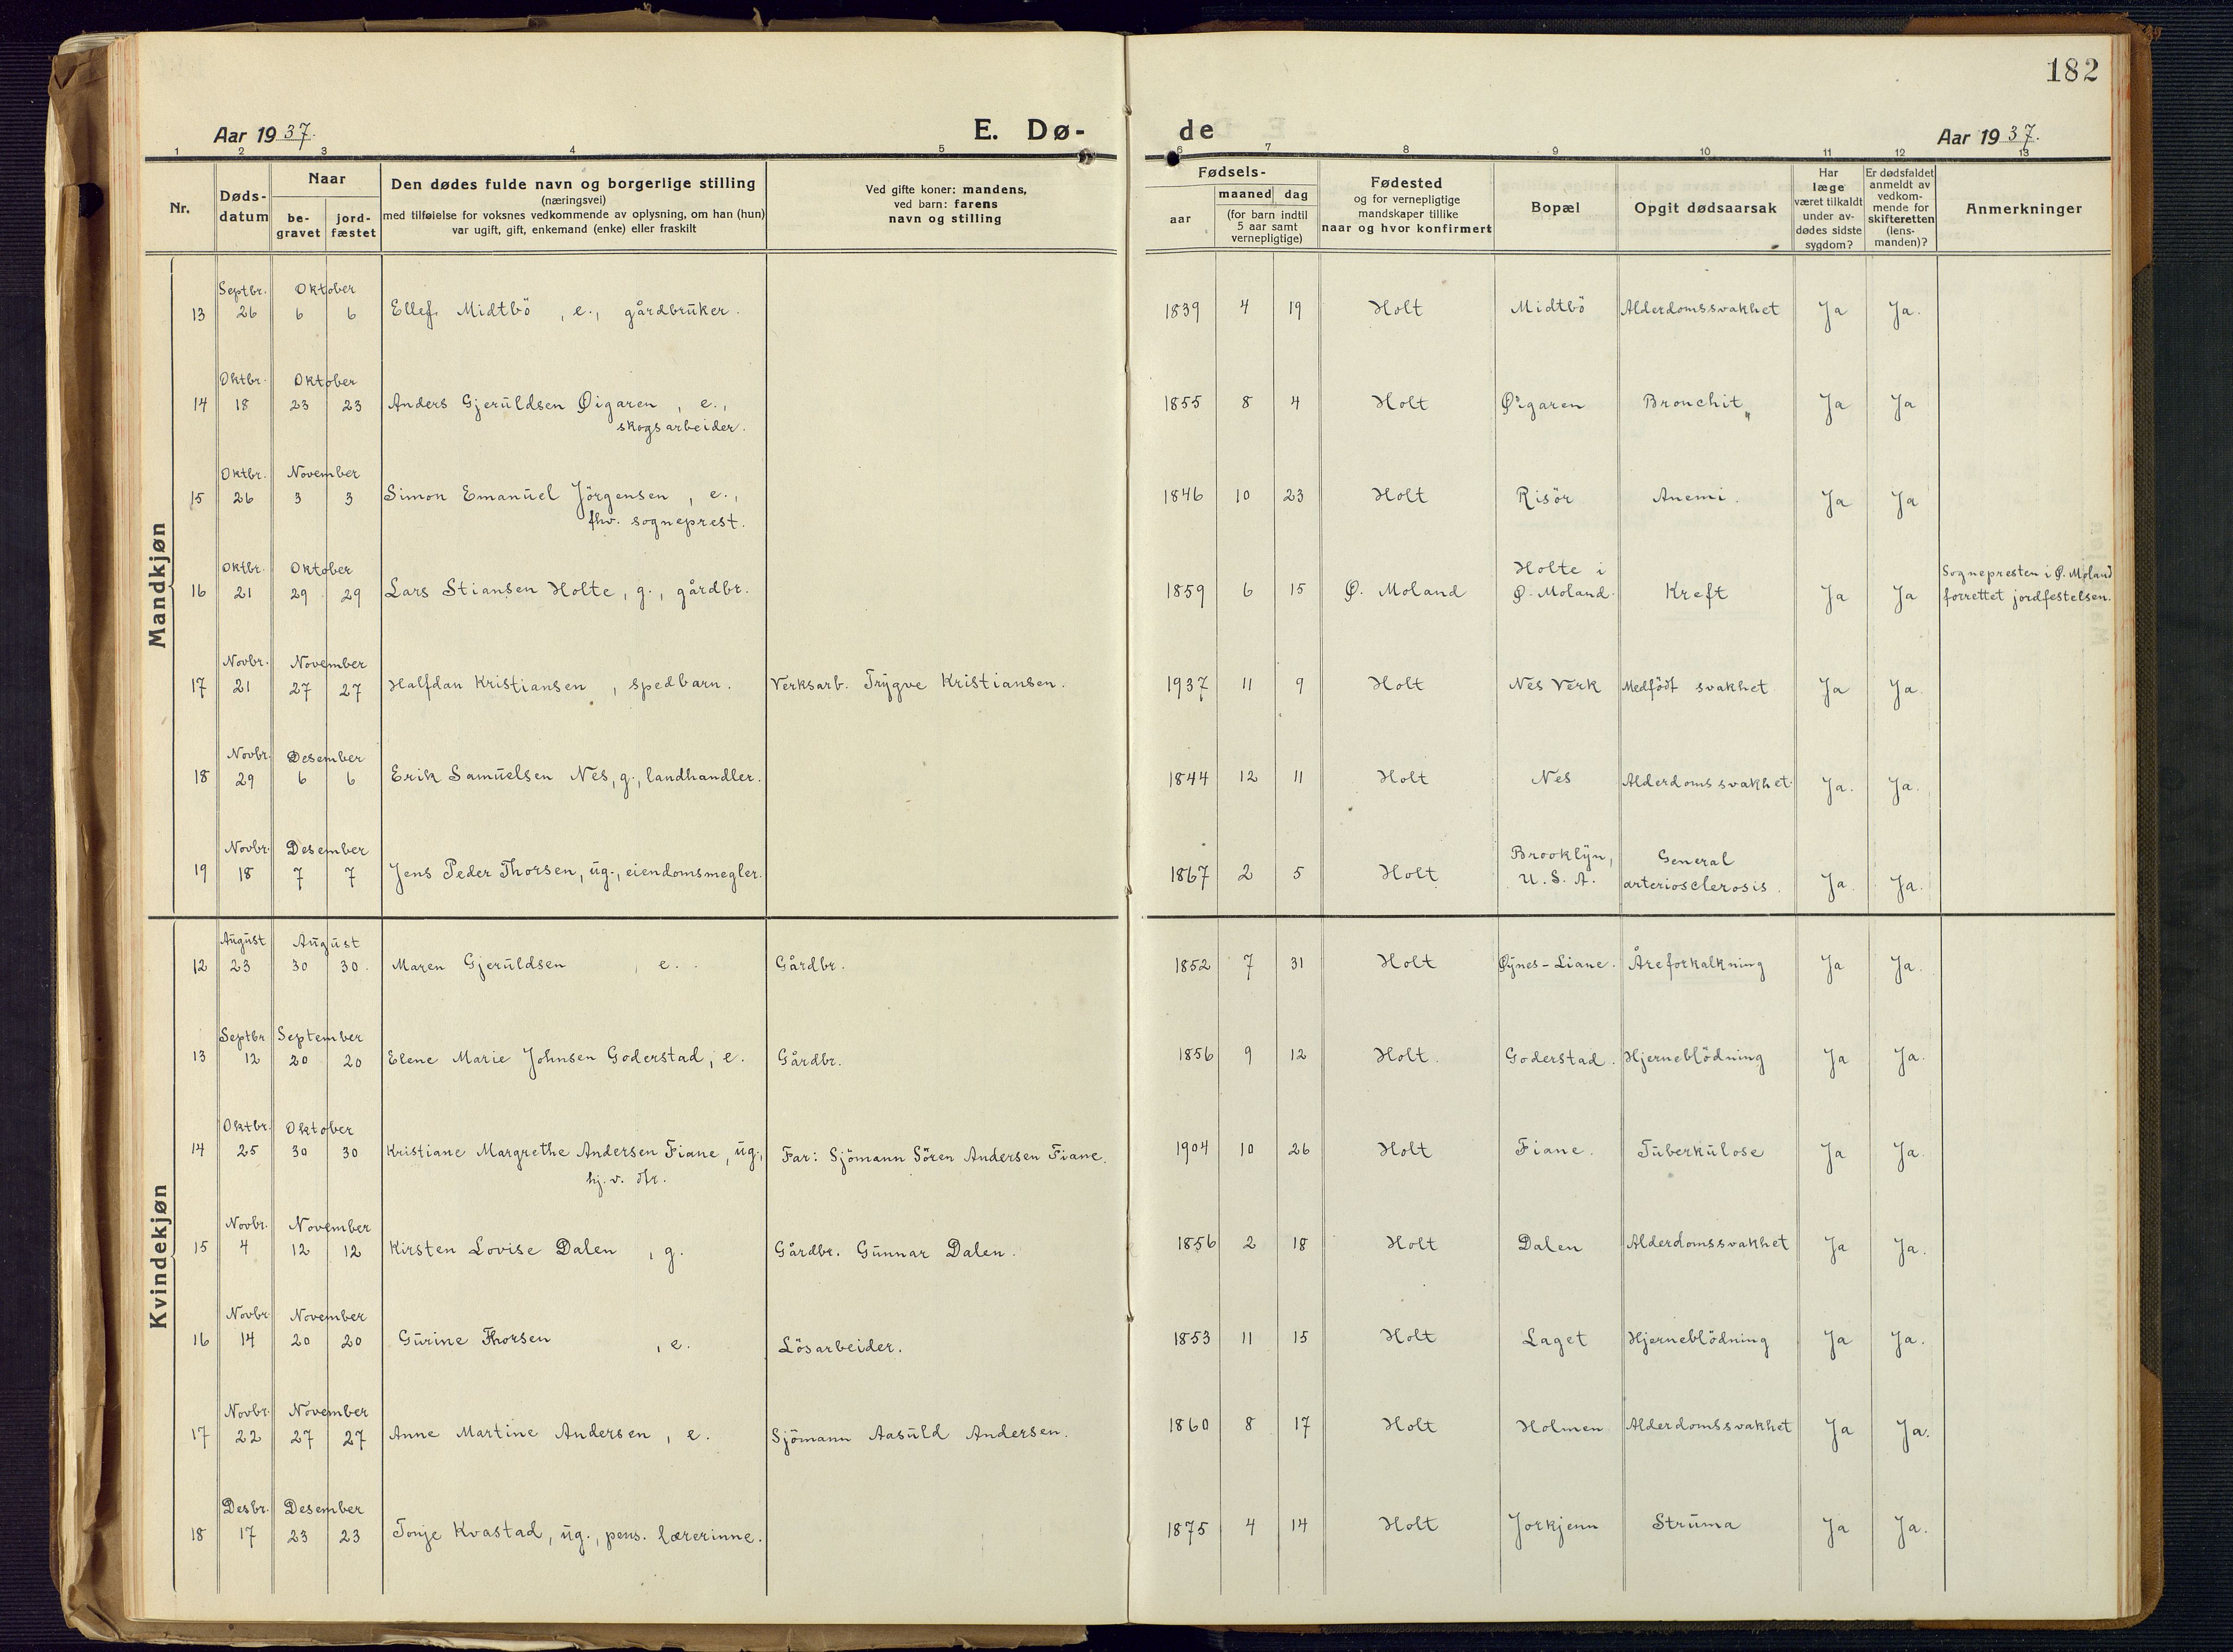 182
Aar 1937.
E. Dø-
de
Aar 1937.
1 2 3 4 5 6 7 8 9 10 11 12 13
Nr.
Døds-
datum
Naar
be-
gravet
jord-
fæstet
Den dødes fulde navn og borgerlige stilling
(næringsvei)
med tilføielse for voksnes vedkommende av oplysning, om han (hun)
var ugift, gift, enkemand (enke) eller fraskilt
Ved gifte koner: mandens,
ved barn: farens
navn og stilling
Fødsels-
aar
maaned dag
(for barn indtil
5 aar samt
vernepligtige)
Fødested
og for vernepligtige
mandskaper tillike
naar og hvor konfirmert
Bopæl
Opgit dødsaarsak
Har
læge
været tilkaldt
under av-
dødes sidste
sygdom?
Er dødsfaldet
anmeldt av
vedkom-
mende for
skifteretten
(lens-
manden)?
Anmerkninger
Mandkjøn
Septbr. Oktober
13 26 6 6 Ellef Midtbö , e., gårdbrūker. 1839 4 19 Holt Midtbö Alderdomssvakhet Ja Ja.
Oktbr. Oktober
14 18 23 23 Anders Gjerūldsen Øigaren , e., 1855 8 4 Holt Øigaren Bronchit Ja Ja
skogsarbeider.
Oktbr. November
15 26 3 3 Simon Emanūel Jörgensen , e., 1846 10 23 Holt Risör Anemi. Ja Ja
fhv. sogneprest.
Oktbr. Oktober Holte i Sognepresten i Ø. Moland
16 21 29 29 Lars Stiansen Holte, g., gårdbr. 1859 6 15 Ø. Moland Ø. Moland. Kreft Ja Ja forrettet jordfestelsen.
Novbr. November
17 21 27 27 Halfdan Kristiansen , spedbarn. Verksarb. Trygve Kristiansen. 1937 11 9 Holt Nes Verk Medfödt svakhet Ja Ja.
Novbr. Desember
18 29 6 6 Erik Samūelsen Nes, g., landhandler. 1844 12 11 Holt Nes Alderdomssvakhet Ja. Ja.
Novbr. Desember Brooklyn, General
19 18 7 7 Jens Peder Thorsen, ūg., eiendomsmegler. 1867 2 5 Holt U.S.A. arteriosclerosis. Ja. Ja.
Kvindekjøn
Aūgūst Aūgūst
12 23 30 30. Maren Gjerūldsen , e. Gårdbr. 1852 7 31 Holt Øynes-Liane. Åreforkalkning Ja Ja.
Septbr. September
13 12 20 20 Elene Marie Johnsen Goderstad, e. Gårdbr. 1856 9 12 Holt. Goderstad. Hjerneblödning Ja Ja.
Oktbr. Oktober
14 25 30 30 Kristiane Margrethe Andersen Fiane, ūg., Far: Sjömann Sören Andersen Fiane. 1904 10 26 Holt Fiane. Tūberkūlose Ja Ja.
hj. v. dtr.
Novbr. November
15 4 12 12 Kirsten Lovise Dalen , g. Gårdbr. Gūnnar Dalen. 1856 2 18 Holt Dalen Alderdomssvakhet Ja Ja.
Novbr. November
16 14 20 20 Gūrine Thorsen , e. Lösarbeider. 1853 11 15 Holt Laget Hjerneblödning Ja Ja.
Novbr. November
17 22 27 27 Anne Martine Andersen , e. Sjömann Aasūld Andersen. 1860 8 17 Holt Holmen Alderdomssvakhet Ja Ja.
Desbr. Desember
18 17 23 23 Tonje Kvastad, ūg., pens. lærerinne. 1875 4 14 Holt Jorkjenn Strūma Ja Ja.